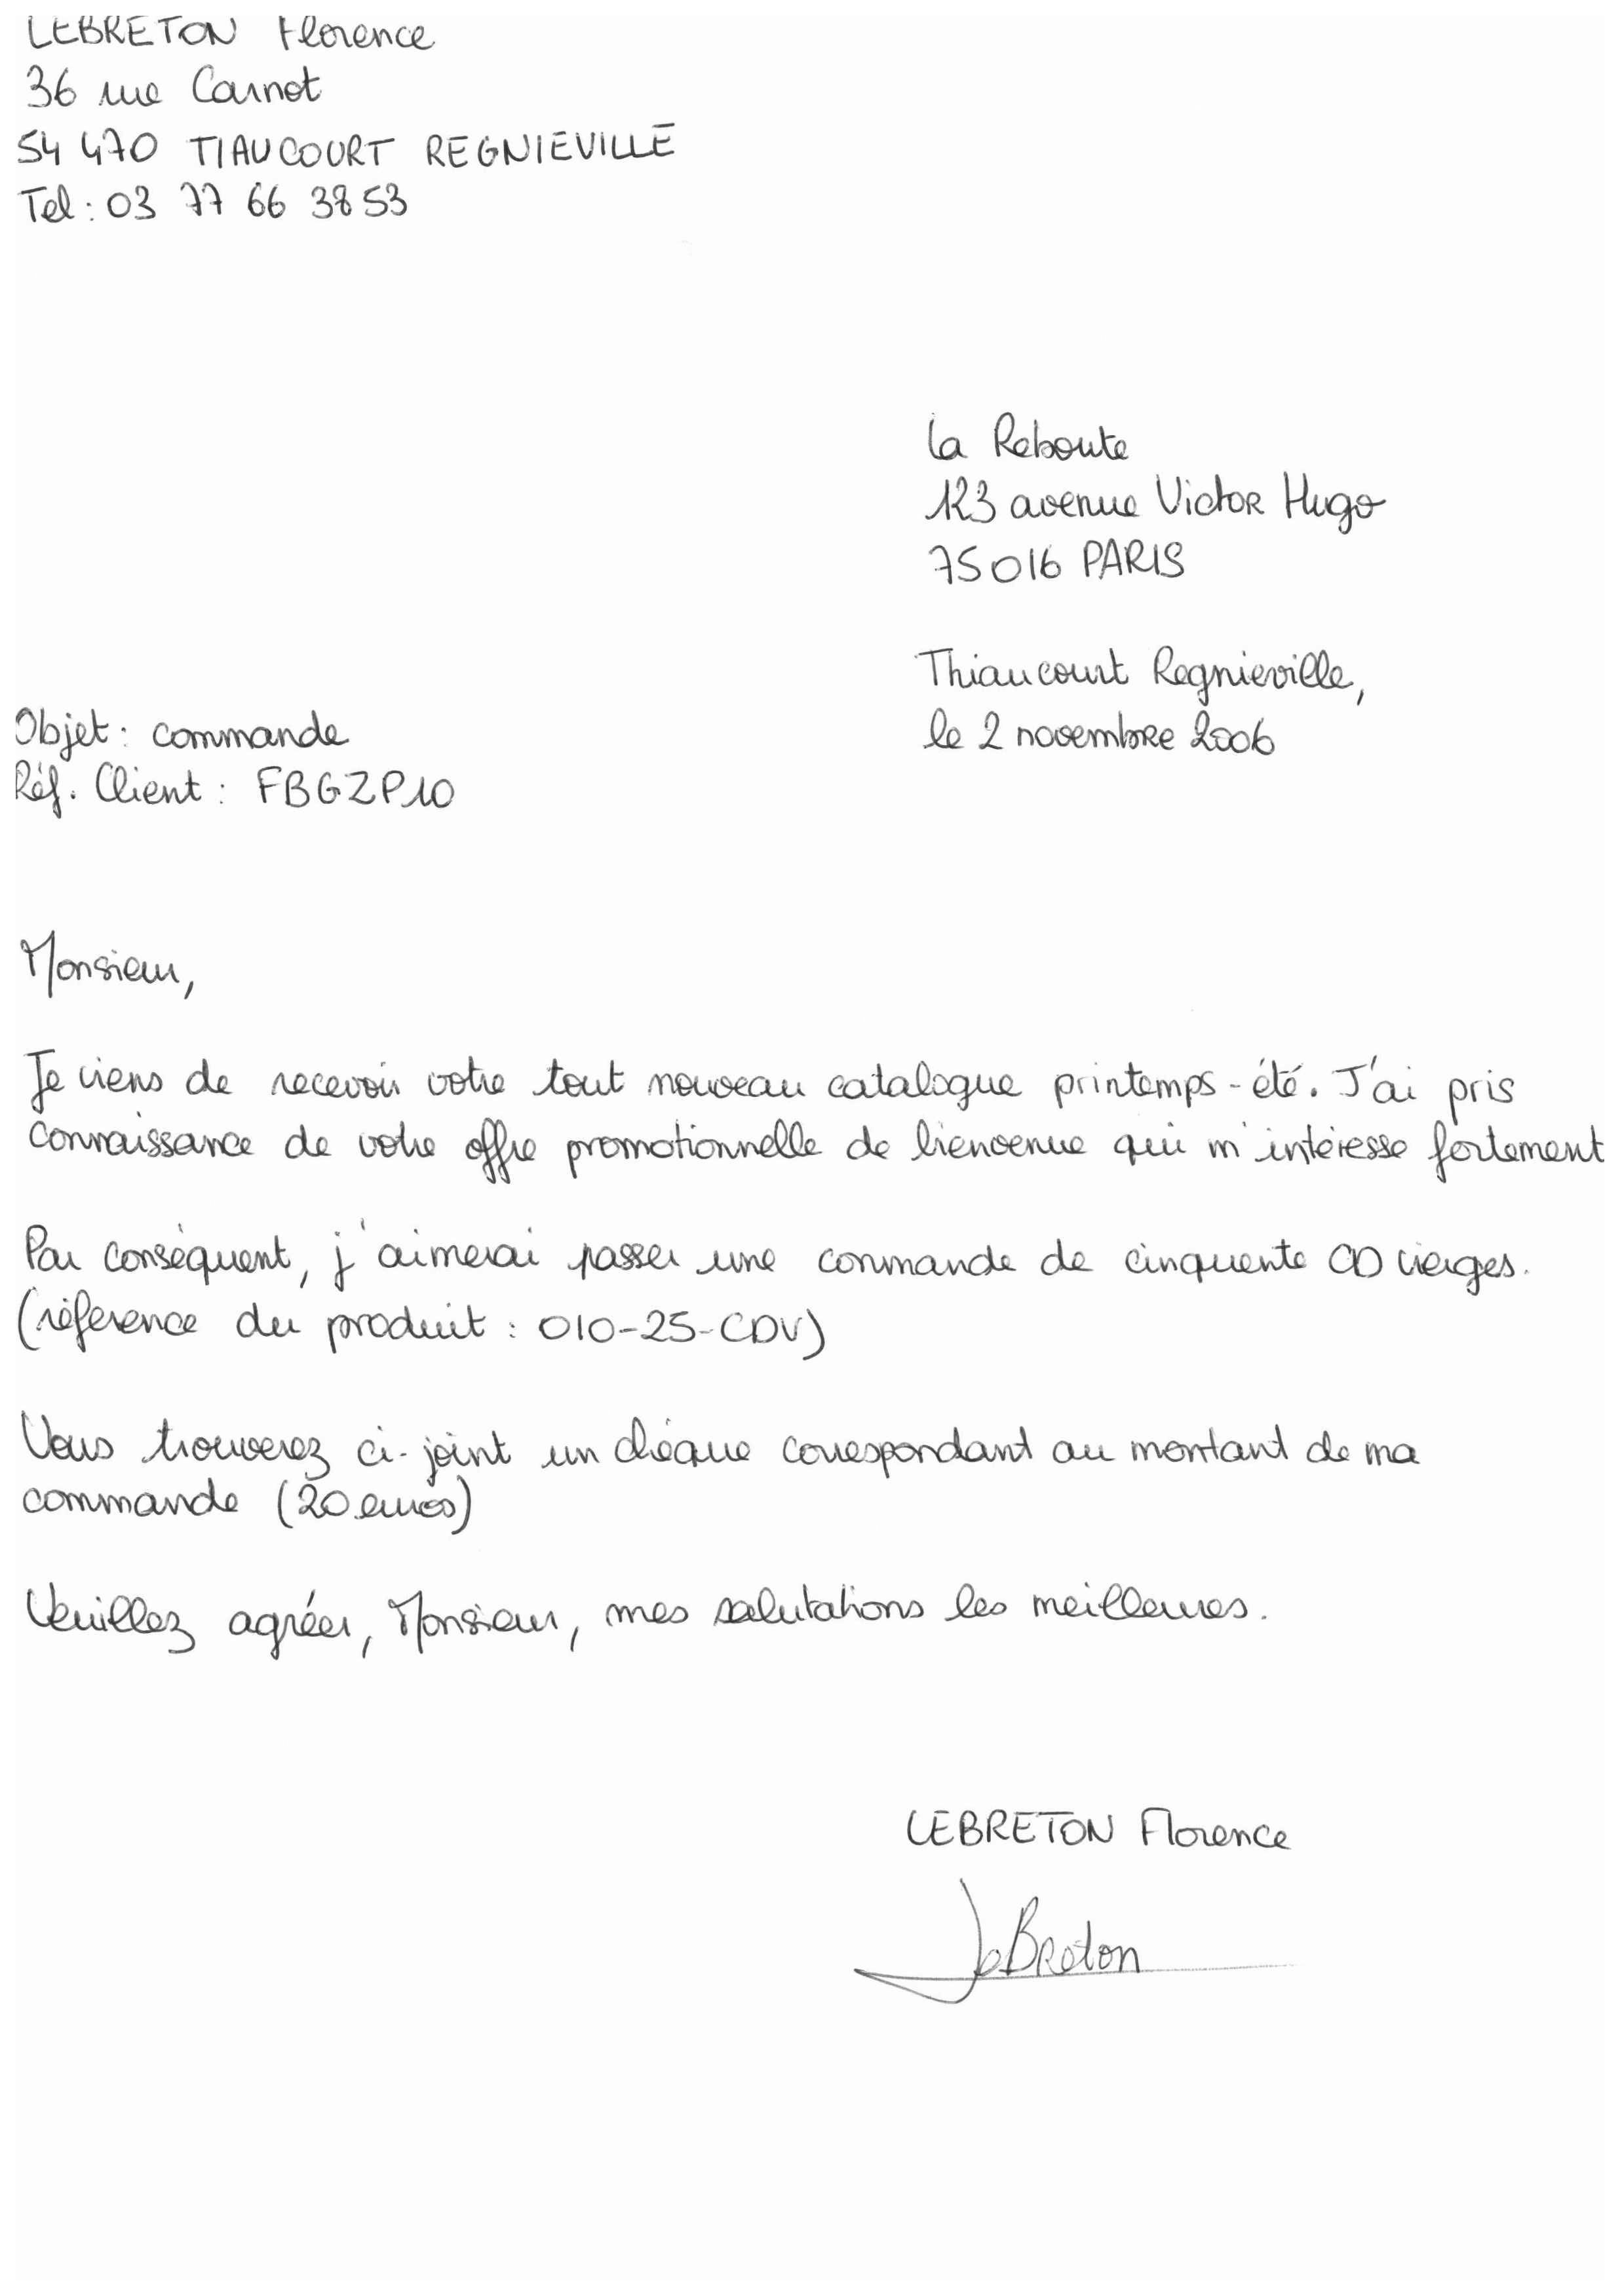 LEBRETON Florence
36 rue Carnot
54 470 TIAUCOURT REGNIEVILLE
Tel : 03 77 66 38 53
La Reboute
123 avenue Victor Hugo
75016 PARIS
Thiaucourt Regnieville,
le 2 novembre 2006
Objet : commande
Réf. Client : FBGZP10
Monsieur,
Je viens de recevoir votre tout nouveau catalogue printemps - été. J'ai pris
connaissance de votre offre promotionnelle de bienvenue qui m'intéresse fortement
Par conséquent, j'aimerai passer une commande de cinquante CD vierges.
(référence du produit : 010-25-CDV)
Vous trouverez ci-joint un chèque correspondant au montant de ma
commande (20 euros)
Veuillez agréer, Monsieur, mes salutations les meilleures.
LEBRETON Florence
LeBreton